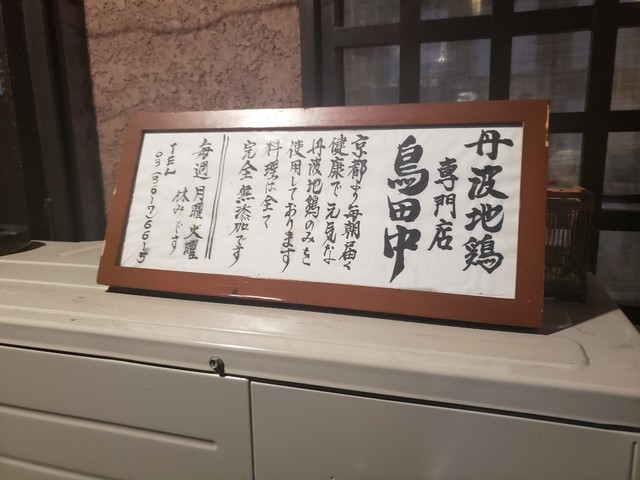 丹波地鶏
専門店
鳥田中
京都より毎朝届く
健康で元気な
丹波地鶏のみを
使用しております
料理は全て
完全無添加です
毎週月曜火曜
休みです
TEL 03(3617)6615